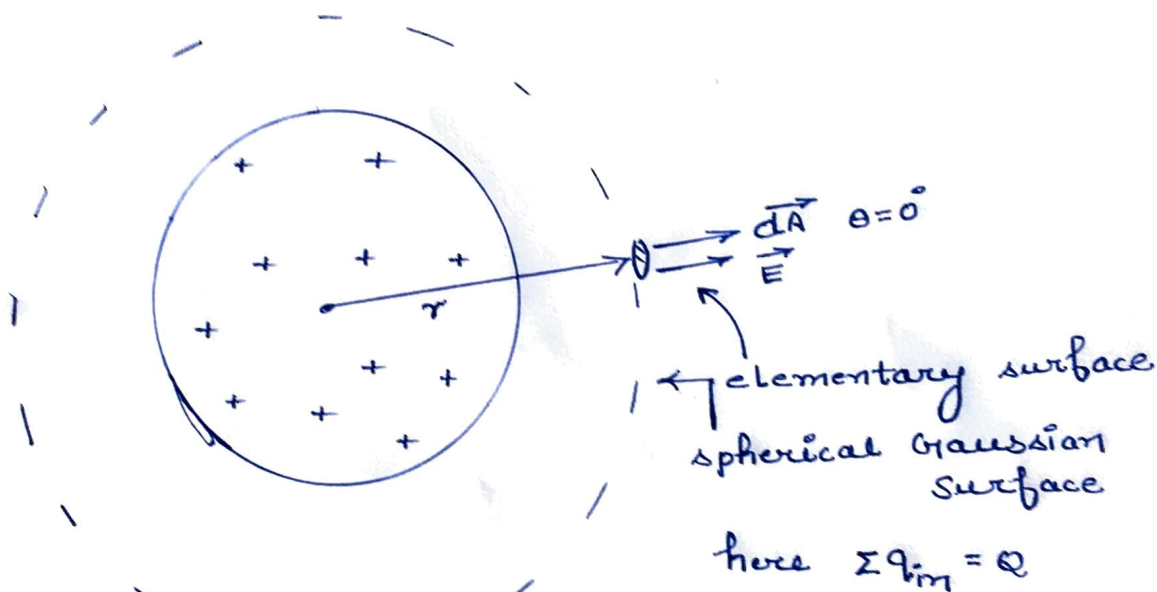 dA θ=0°
E
r
elementary surface
spherical Gaussian
surface
here Σqin = Q